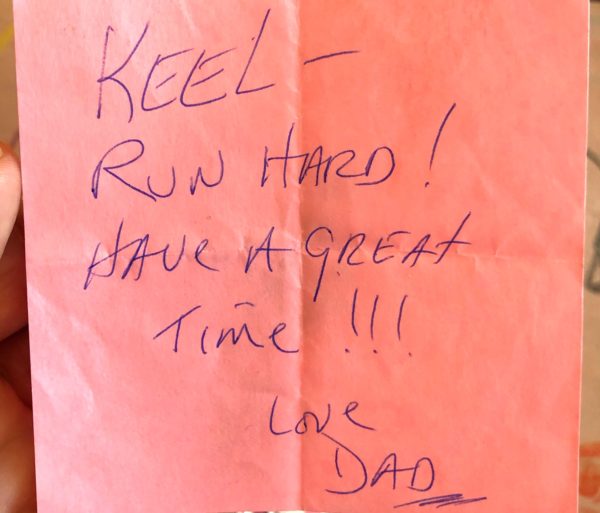 KEEL –
RUN HARD!
HAVE A GREAT
TIME !!!
Love
DAD